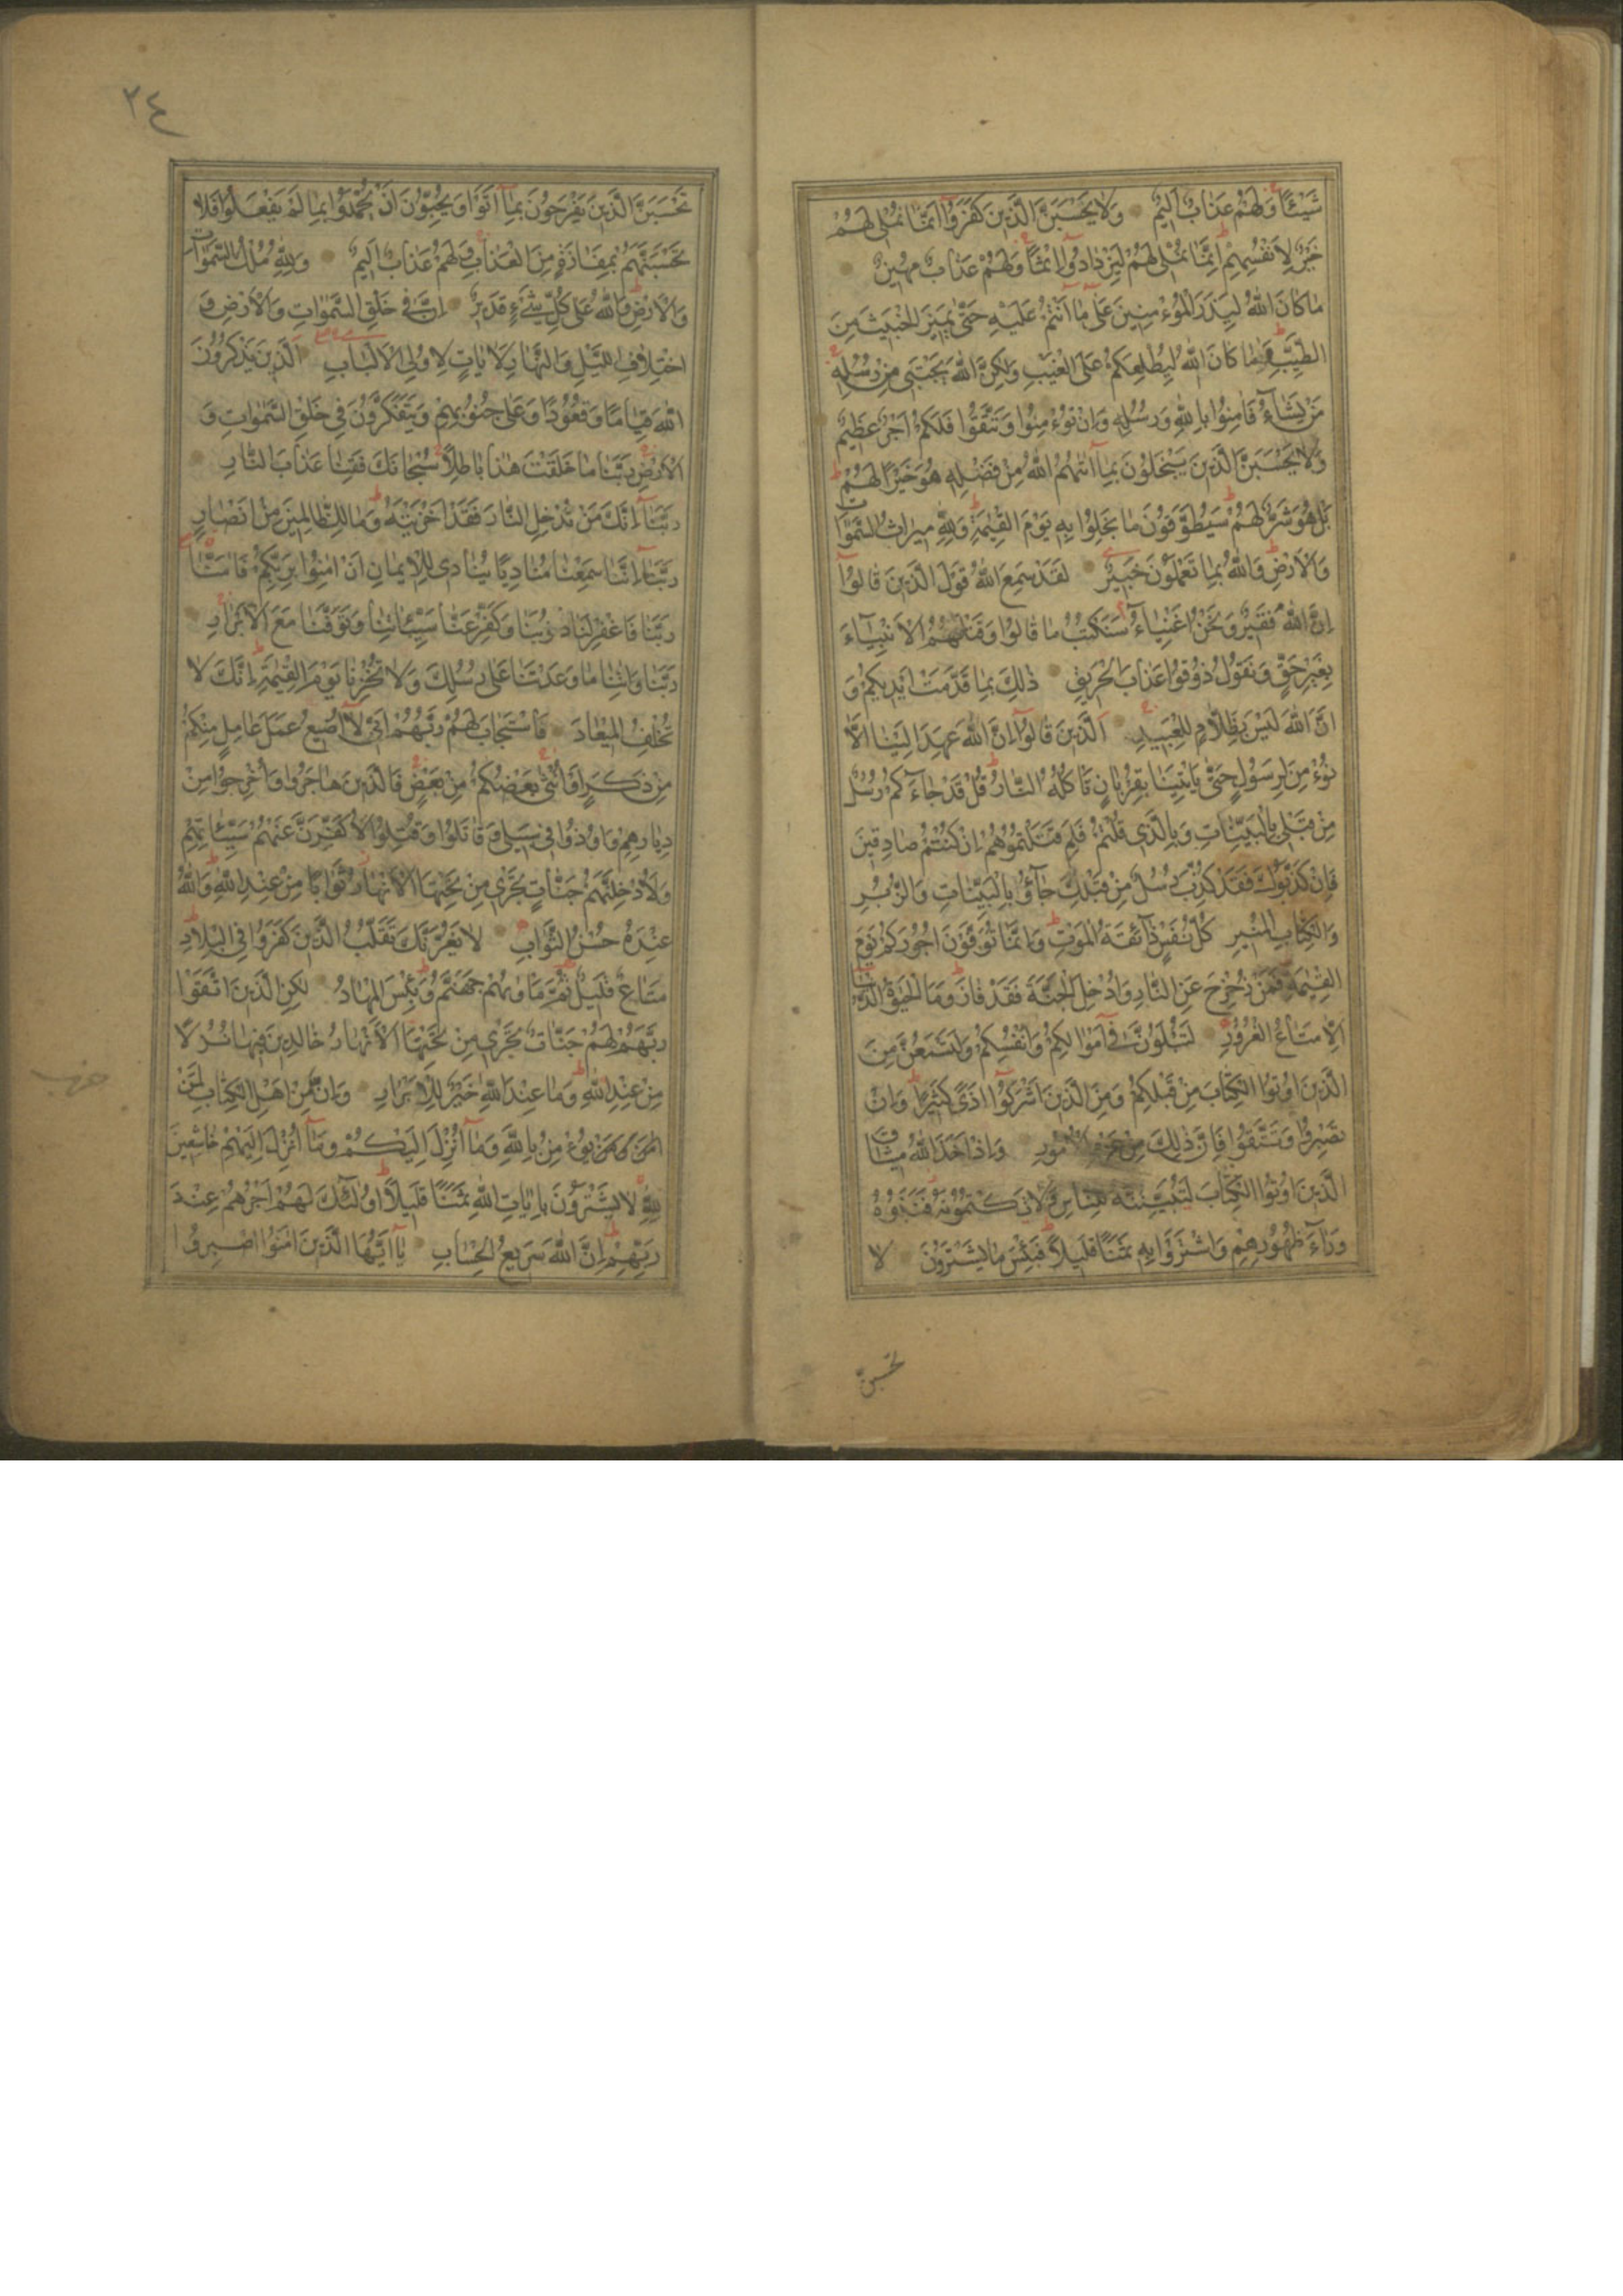 شَيْئًا وَلَهُمْ عَذَابٌ اَلِيمٌ وَلَا يَحْسَبَنَّ الَّذِينَ كَفَرُوا اَنَّمَا نُمْلِى لَهُمْ
خَيْرٌ لِاَنْفُسِهِمْ اِنَّمَا نُمْلِى لَهُمْ لِيَزْدَادُوا اِثْمًا وَلَهُمْ عَذَابٌ مُهِينٌ
مَا كَانَ اللّٰهُ لِيَذَرَ الْمُؤْمِنِينَ عَلٰى مَا اَنْتُمْ عَلَيْهِ حَتّٰى يَمِيزَ الْخَبِيثَ مِنَ
الطَّيِّبِ وَمَا كَانَ اللّٰهُ لِيُطْلِعَكُمْ عَلَى الْغَيْبِ وَلٰكِنَّ اللّٰهَ يَجْتَبِى مِنْ رُسُلِهِ
مَنْ يَشَاءُ فَاٰمِنُوا بِاللّٰهِ وَرُسُلِهِ وَاِنْ تُؤْمِنُوا وَتَتَّقُوا فَلَكُمْ اَجْرٌ عَظِيمٌ
وَلَا يَحْسَبَنَّ الَّذِينَ يَبْخَلُونَ بِمَا اٰتٰىهُمُ اللّٰهُ مِنْ فَضْلِهِ هُوَ خَيْرًا لَهُمْ
بَلْ هُوَ شَرٌّ لَهُمْ سَيُطَوَّقُونَ مَا بَخِلُوا بِهِ يَوْمَ الْقِيٰمَةِ وَلِلّٰهِ مِيرَاثُ السَّمٰوَاتِ
وَالْاَرْضِ وَاللّٰهُ بِمَا تَعْمَلُونَ خَبِيرٌ لَقَدْ سَمِعَ اللّٰهُ قَوْلَ الَّذِينَ قَالُوا
اِنَّ اللّٰهَ فَقِيرٌ وَنَحْنُ اَغْنِيَاءُ سَنَكْتُبُ مَا قَالُوا وَقَتْلَهُمُ الْاَنْبِيَاءَ
بِغَيْرِ حَقٍّ وَنَقُولُ ذُوقُوا عَذَابَ الْحَرِيقِ ذٰلِكَ بِمَا قَدَّمَتْ اَيْدِيكُمْ وَ
اَنَّ اللّٰهَ لَيْسَ بِظَلَّامٍ لِلْعَبِيدِ اَلَّذِينَ قَالُوا اِنَّ اللّٰهَ عَهِدَ اِلَيْنَا اَلَّا
نُؤْمِنَ لِرَسُولٍ حَتّٰى يَأْتِيَنَا بِقُرْبَانٍ تَأْكُلُهُ النَّارُ قُلْ قَدْ جَاءَكُمْ رُسُلٌ
مِنْ قَبْلِى بِالْبَيِّنَاتِ وَبِالَّذِى قُلْتُمْ فَلِمَ قَتَلْتُمُوهُمْ اِنْ كُنْتُمْ صَادِقِينَ
فَاِنْ كَذَّبُوكَ فَقَدْ كُذِّبَ رُسُلٌ مِنْ قَبْلِكَ جَاؤُ بِالْبَيِّنَاتِ وَالزُّبُرِ
وَالْكِتَابِ الْمُنِيرِ كُلُّ نَفْسٍ ذَائِقَةُ الْمَوْتِ وَاِنَّمَا تُوَفَّوْنَ اُجُورَكُمْ يَوْمَ
الْقِيٰمَةِ فَمَنْ زُحْزِحَ عَنِ النَّارِ وَاُدْخِلَ الْجَنَّةَ فَقَدْ فَازَ وَمَا الْحَيٰوةُ الدُّنْيَا
اِلَّا مَتَاعُ الْغُرُورِ لَتُبْلَوُنَّ فِى اَمْوَالِكُمْ وَاَنْفُسِكُمْ وَلَتَسْمَعُنَّ مِنَ
الَّذِينَ اُوتُوا الْكِتَابَ مِنْ قَبْلِكُمْ وَمِنَ الَّذِينَ اَشْرَكُوا اَذًى كَثِيرًا وَاِنْ
تَصْبِرُوا وَتَتَّقُوا فَاِنَّ ذٰلِكَ مِنْ عَزْمِ الْاُمُورِ وَاِذْ اَخَذَ اللّٰهُ مِيثَاقَ
الَّذِينَ اُوتُوا الْكِتَابَ لَتُبَيِّنُنَّهُ لِلنَّاسِ وَلَا تَكْتُمُونَهُ فَنَبَذُوهُ
وَرَاءَ ظُهُورِهِمْ وَاشْتَرَوْا بِهِ ثَمَنًا قَلِيلًا فَبِئْسَ مَا يَشْتَرُونَ لَا
تحسبنّ
٢٤
تَحْسَبَنَّ الَّذِينَ يَفْرَحُونَ بِمَا اَتَوْا وَيُحِبُّونَ اَنْ يُحْمَدُوا بِمَا لَمْ يَفْعَلُوا فَلَا
تَحْسَبَنَّهُمْ بِمَفَازَةٍ مِنَ الْعَذَابِ وَلَهُمْ عَذَابٌ اَلِيمٌ وَلِلّٰهِ مُلْكُ السَّمٰوَاتِ
وَالْاَرْضِ وَاللّٰهُ عَلٰى كُلِّ شَىْءٍ قَدِيرٌ اِنَّ فِى خَلْقِ السَّمٰوَاتِ وَالْاَرْضِ وَ
اخْتِلَافِ اللَّيْلِ وَالنَّهَارِ لَاٰيَاتٍ لِاُولِى الْاَلْبَابِ اَلَّذِينَ يَذْكُرُونَ
اللّٰهَ قِيَامًا وَقُعُودًا وَعَلٰى جُنُوبِهِمْ وَيَتَفَكَّرُونَ فِى خَلْقِ السَّمٰوَاتِ وَ
الْاَرْضِ رَبَّنَا مَا خَلَقْتَ هٰذَا بَاطِلًا سُبْحَانَكَ فَقِنَا عَذَابَ النَّارِ
رَبَّنَا اِنَّكَ مَنْ تُدْخِلِ النَّارَ فَقَدْ اَخْزَيْتَهُ وَمَا لِلظَّالِمِينَ مِنْ اَنْصَارٍ
رَبَّنَا اِنَّنَا سَمِعْنَا مُنَادِيًا يُنَادِى لِلْاِيمَانِ اَنْ اٰمِنُوا بِرَبِّكُمْ فَاٰمَنَّا
رَبَّنَا فَاغْفِرْ لَنَا ذُنُوبَنَا وَكَفِّرْ عَنَّا سَيِّئَاتِنَا وَتَوَفَّنَا مَعَ الْاَبْرَارِ
رَبَّنَا وَاٰتِنَا مَا وَعَدْتَنَا عَلٰى رُسُلِكَ وَلَا تُخْزِنَا يَوْمَ الْقِيٰمَةِ اِنَّكَ لَا
تُخْلِفُ الْمِيعَادَ فَاسْتَجَابَ لَهُمْ رَبُّهُمْ اَنِّى لَا اُضِيعُ عَمَلَ عَامِلٍ مِنْكُمْ
مِنْ ذَكَرٍ اَوْ اُنْثٰى بَعْضُكُمْ مِنْ بَعْضٍ فَالَّذِينَ هَاجَرُوا وَاُخْرِجُوا مِنْ
دِيَارِهِمْ وَاُوذُوا فِى سَبِيلِى وَقَاتَلُوا وَقُتِلُوا لَاُكَفِّرَنَّ عَنْهُمْ سَيِّئَاتِهِمْ
وَلَاُدْخِلَنَّهُمْ جَنَّاتٍ تَجْرِى مِنْ تَحْتِهَا الْاَنْهَارُ ثَوَابًا مِنْ عِنْدِ اللّٰهِ وَاللّٰهُ
عِنْدَهُ حُسْنُ الثَّوَابِ لَا يَغُرَّنَّكَ تَقَلُّبُ الَّذِينَ كَفَرُوا فِى الْبِلَادِ
مَتَاعٌ قَلِيلٌ ثُمَّ مَأْوٰىهُمْ جَهَنَّمُ وَبِئْسَ الْمِهَادُ لٰكِنِ الَّذِينَ اتَّقَوْا
رَبَّهُمْ لَهُمْ جَنَّاتٌ تَجْرِى مِنْ تَحْتِهَا الْاَنْهَارُ خَالِدِينَ فِيهَا نُزُلًا
مِنْ عِنْدِ اللّٰهِ وَمَا عِنْدَ اللّٰهِ خَيْرٌ لِلْاَبْرَارِ وَاِنَّ مِنْ اَهْلِ الْكِتَابِ لَمَنْ
يُؤْمِنُ بِاللّٰهِ وَمَا اُنْزِلَ اِلَيْكُمْ وَمَا اُنْزِلَ اِلَيْهِمْ خَاشِعِينَ
لِلّٰهِ لَا يَشْتَرُونَ بِاٰيَاتِ اللّٰهِ ثَمَنًا قَلِيلًا اُولٰئِكَ لَهُمْ اَجْرُهُمْ عِنْدَ
رَبِّهِمْ اِنَّ اللّٰهَ سَرِيعُ الْحِسَابِ يَا اَيُّهَا الَّذِينَ اٰمَنُوا اصْبِرُوا